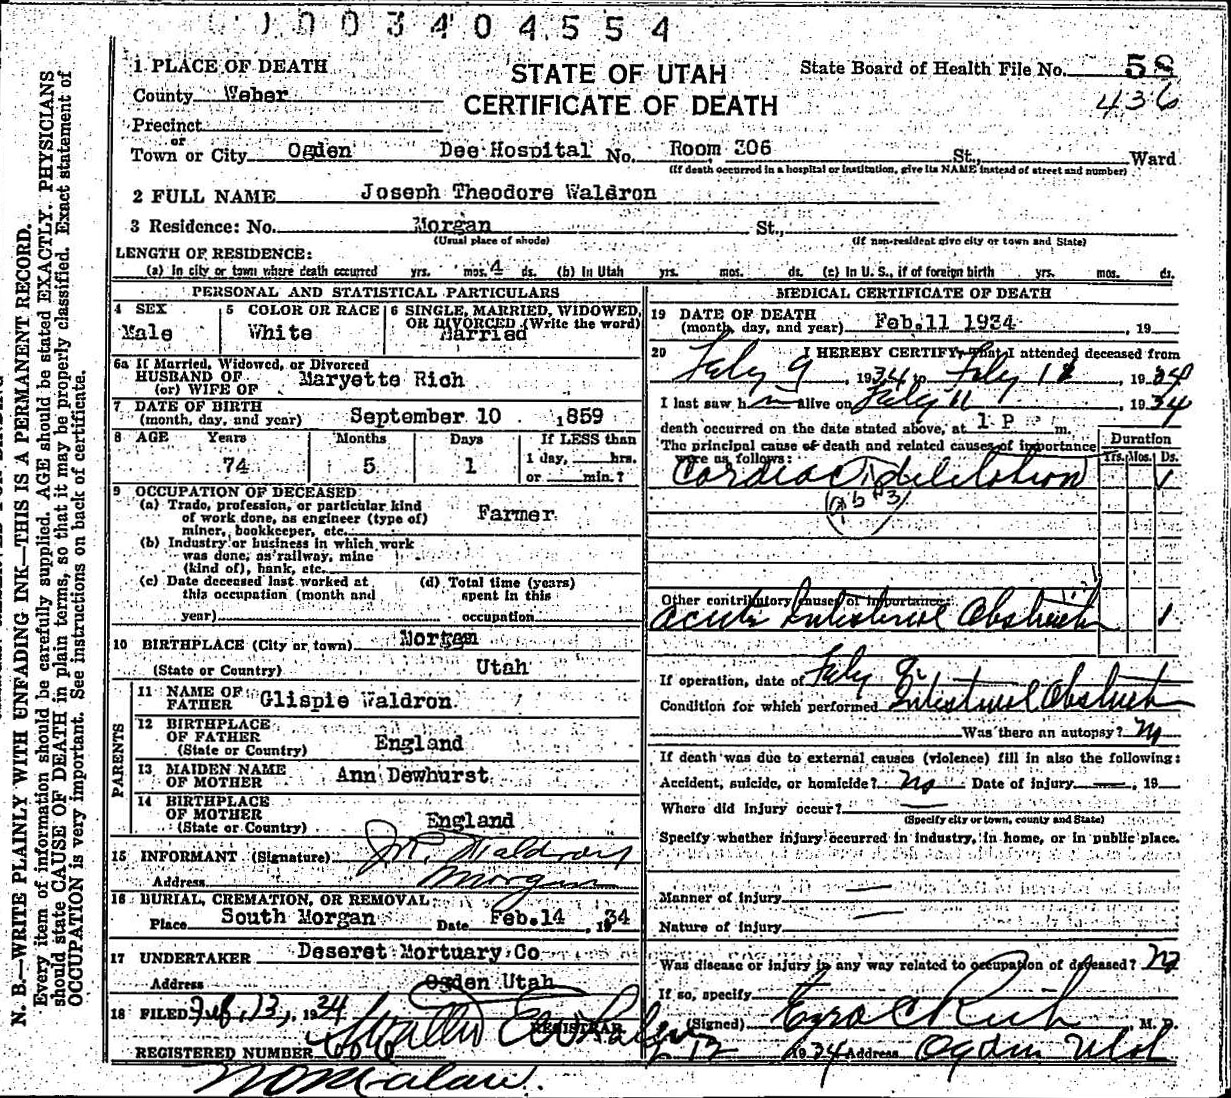 0003404554
1 PLACE OF DEATH
STATE OF UTAH
CERTIFICATE OF DEATH
State Board of Health File No. 58
436
County Weber
Precinct
or
Town or City Ogden Dee Hospital No. Room 306 St., Ward
(If death occurred in a hospital or institution, give its NAME instead of street and number)
2 FULL NAME Joseph Theodore Waldron
3 Residence: No. Morgan St.,
(Usual place of abode) (If non-resident give city or town and State)
LENGTH OF RESIDENCE:
(a) In city or town where death occurred yrs. mos. 4 ds. (b) In Utah yrs. mos. ds. (c) In U. S., if of foreign birth yrs. mos. ds.
PERSONAL AND STATISTICAL PARTICULARS
4 SEX Male
5 COLOR OR RACE White
6 SINGLE, MARRIED, WIDOWED, OR DIVORCED (Write the word) Married
6a If Married, Widowed, or Divorced
HUSBAND OF
(or) WIFE OF Maryette Rich
7 DATE OF BIRTH
(month, day, and year) September 10 1859
8 AGE Years Months Days If LESS than
74 5 1 1 day, hrs.
or min.?
9 OCCUPATION OF DECEASED
(a) Trade, profession, or particular kind
of work done, as engineer (type of)
miner, bookkeeper, etc. Farmer
(b) Industry or business in which work
was done, as railway, mine
(kind of), bank, etc.
(c) Date deceased last worked at
this occupation (month and
year)
(d) Total time (years)
spent in this
occupation
10 BIRTHPLACE (City or town) Morgan
(State or Country) Utah
PARENTS
11 NAME OF
FATHER Glispie Waldron
12 BIRTHPLACE
OF FATHER
(State or Country) England
13 MAIDEN NAME
OF MOTHER Ann Dewhurst
14 BIRTHPLACE
OF MOTHER
(State or Country) England
15 INFORMANT (Signature) J.R. Waldron
Address Morgan
16 BURIAL, CREMATION, OR REMOVAL:
Place South Morgan Date Feb. 14, 1934
17 UNDERTAKER Deseret Mortuary Co
Address Ogden Utah
18 FILED Feb, 13, 1934
REGISTRAR
REGISTERED NUMBER 66
MEDICAL CERTIFICATE OF DEATH
19 DATE OF DEATH
(month, day, and year) Feb. 11 1934, 19
20 I HEREBY CERTIFY, That I attended deceased from
Feby 9, 1934 to Feby 12, 1934
I last saw h m alive on Feby 11, 1934
death occurred on the date stated above, at 1 P m.
The principal cause of death and related causes of importance
were as follows:
Duration
Yrs. Mos. Ds.
Cardiac Dilitation 1
Other contributory causes of importance:
Acute Intestinal Obstruct 1
If operation, date of Feby 9
Condition for which performed Intestinal Obstruct
Was there an autopsy? No
If death was due to external causes (violence) fill in also the following:
Accident, suicide, or homicide? No Date of injury —, 19
Where did injury occur? —
(Specify city or town, county and State)
Specify whether injury occurred in industry, in home, or in public place.
Manner of injury —
Nature of injury —
Was disease or injury in any way related to occupation of deceased? No
If so, specify
(Signed) Ezra C Rich M. D.
2 12 1934 Address Ogden Utah
N. B.—WRITE PLAINLY WITH UNFADING INK—THIS IS A PERMANENT RECORD.
Every item of information should be carefully supplied. AGE should be stated EXACTLY. PHYSICIANS
should state CAUSE OF DEATH in plain terms, so that it may be properly classified. Exact statement of
OCCUPATION is very important. See instructions on back of certificate.